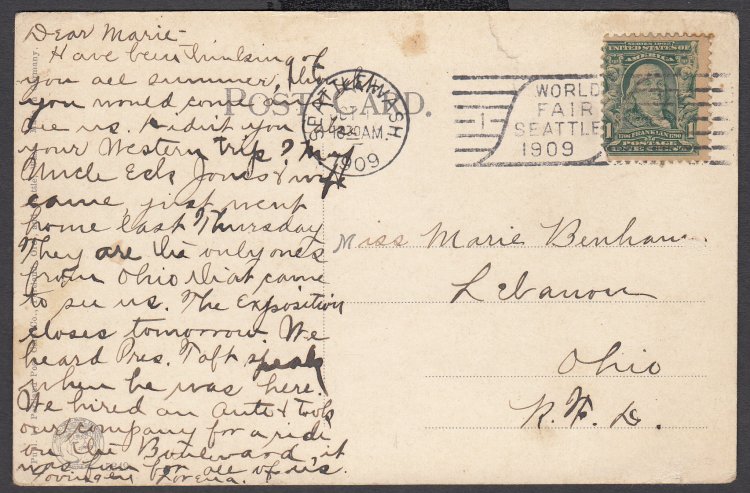 Dear Marie -
Have been thinking of
you all summer, thin
you would come an
see us. Didn't you li
your Western trip? My
Uncle Eck Jones & wife
came, just went
home last Thursday
They are the only ones
from Ohio that came
to see us. The Exposition
closes tomorrow. We
heard Pres. Taft speak
when he was here.
We hired an Auto & took
our company for a ride
on the Boulevard, it
was fun for all of us.
Lovingly Lorena.
POST CARD.
SEATTLE, WASH
OCT
1909
WORLD'S
FAIR
SEATTLE
1909
1
SERIES 1902
UNITED STATES OF
AMERICA
FRANKLIN
1 POSTAGE 1
ONE CENT
Miss Marie Benham
Lebanon
Ohio
R. F. D.
Germany.